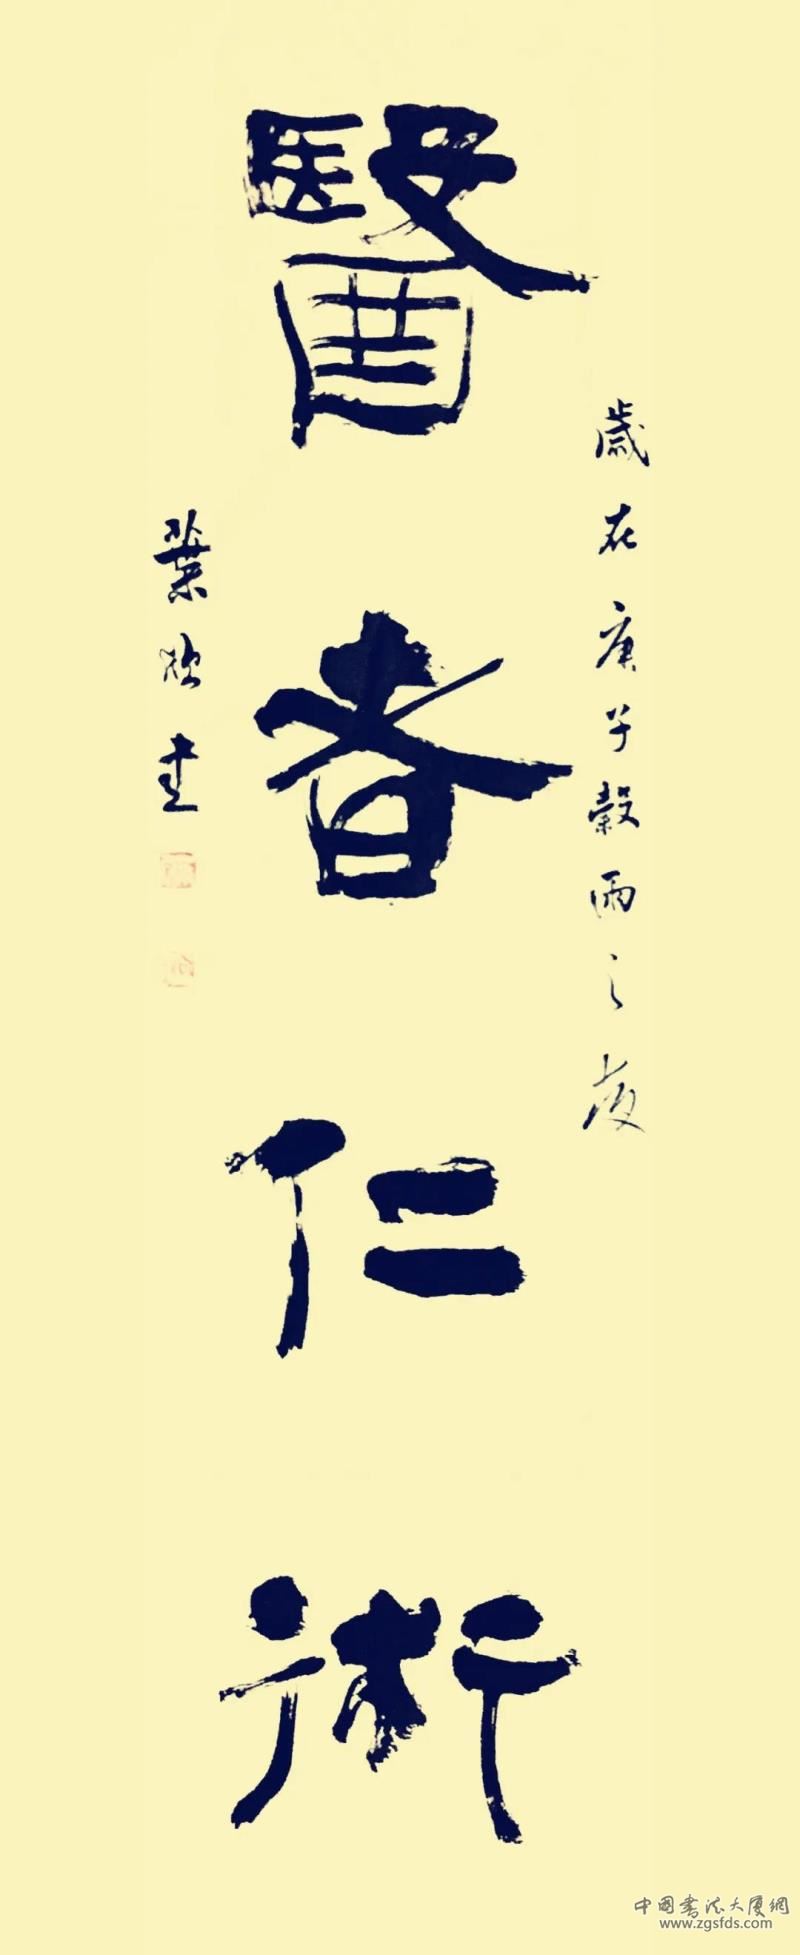 歲在庚子穀雨之後
醫者仁術
葉欣書
中國書法大廈網
www.zgsfds.com